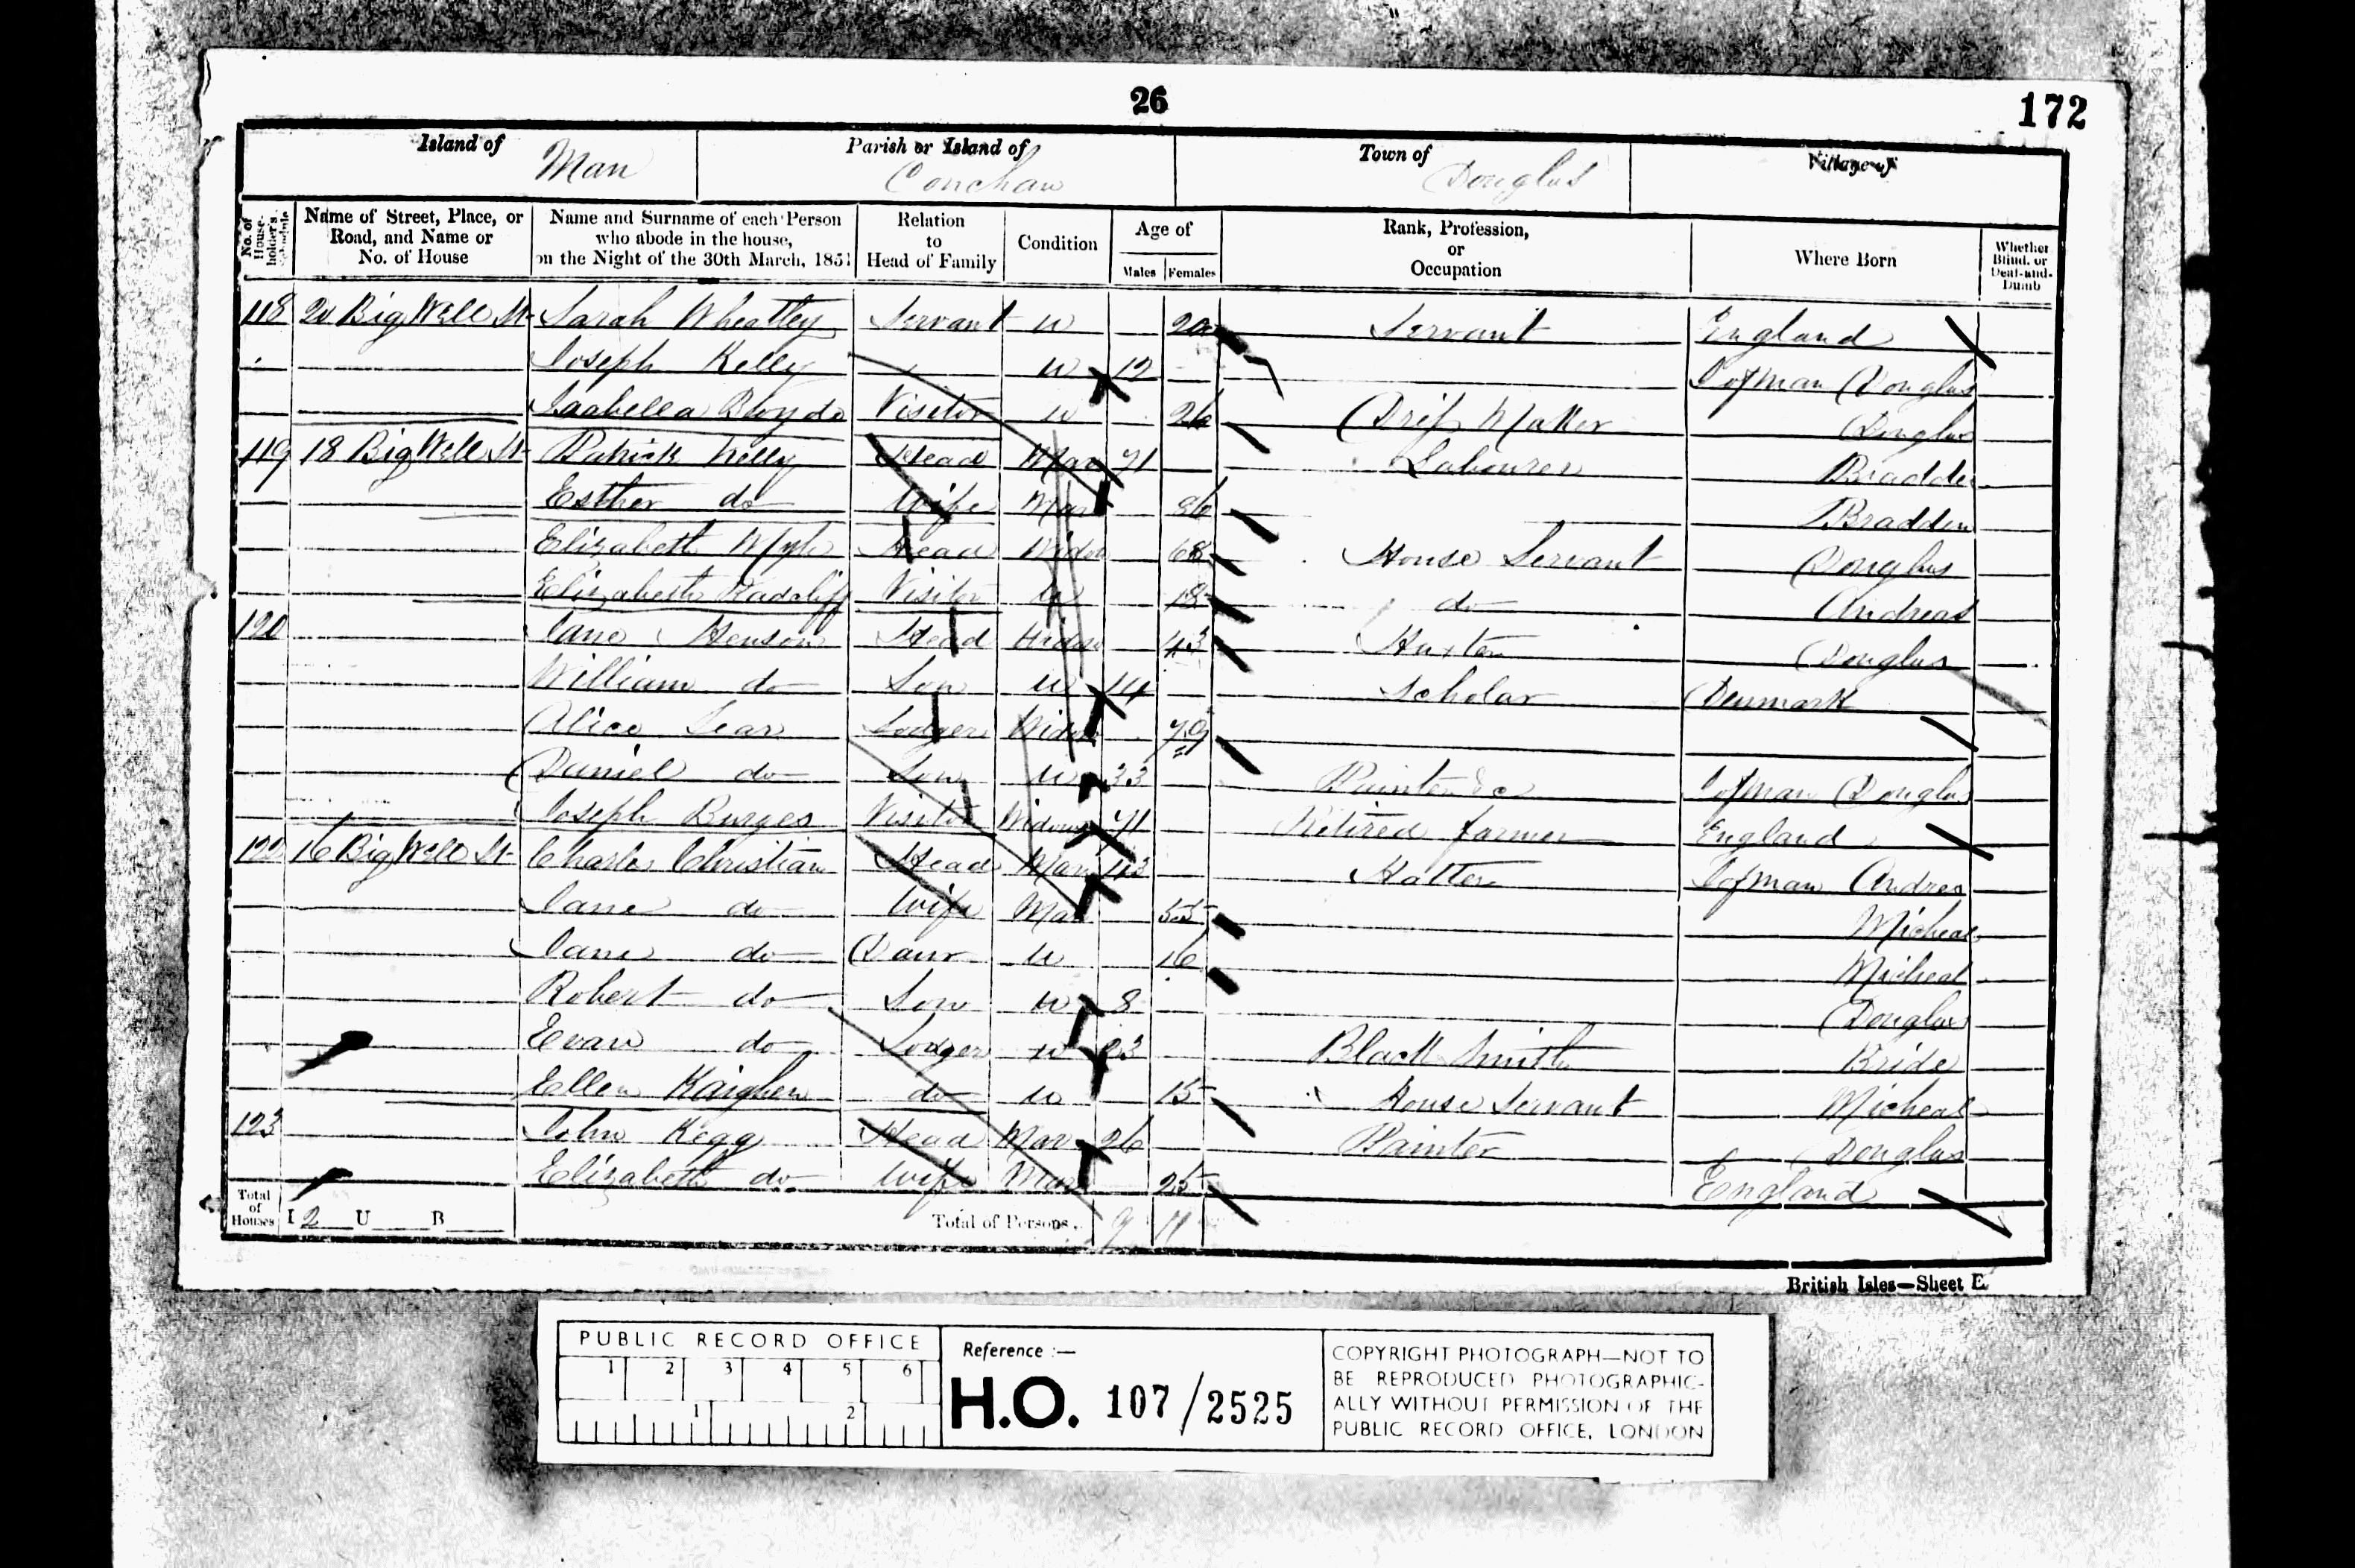 26
172
Island of Man Parish or Island of Conchan Town of Douglas Village of
No. of House-holder's Schedule | Name of Street, Place, or Road, and Name or No. of House | Name and Surname of each Person who abode in the house, on the Night of the 30th March, 1851 | Relation to Head of Family | Condition | Age of Males Females | Rank, Profession, or Occupation | Where Born | Whether Blind, or Deaf-and-Dumb
118 20 Big Well St Sarah Wheatley Servant U 20 Servant England
Joseph Kelly U 12 I of Man Douglas
Isabella Boyde Visitor U 26 Maker Douglas
119 18 Big Well St Patrick Kelly Head Mar 71 Labourer Bradden
Esther do Wife Mar Bradden
Elizabeth Head Widow 68 House Servant Douglas
Elizabeth Radcliff Visitor U 18 do Andreas
120 Jane Henson Head Widow 43 Huxter Douglas
William do Son U 14 Scholar Denmark
Alice Lear Lodger Widow 79
Daniel do Son U 33 Painter &c I of Man Douglas
Joseph Burges Visitor Widower 71 Retired farmer England
122 16 Big Well St Charles Christian Head Mar 43 Hatter I of Man Andreas
Jane do Wife Mar 55 Micheal
Jane do Daur U 16 Micheal
Robert do Son U 8 Douglas
Evan do Lodger U 23 Black Smith Bride
Ellen Kaighen do U 15 House Servant Micheal
123 John Kegg Head Mar 26 Painter Douglas
Elizabeth do Wife Mar 25 England
Total of Houses I 2 U B Total of Persons 9 11
British Isles—Sheet E
PUBLIC RECORD OFFICE
1 2 3 4 5 6
1 2
Reference :—
H.O. 107/2525
COPYRIGHT PHOTOGRAPH—NOT TO
BE REPRODUCED PHOTOGRAPHIC-
ALLY WITHOUT PERMISSION OF THE
PUBLIC RECORD OFFICE, LONDON